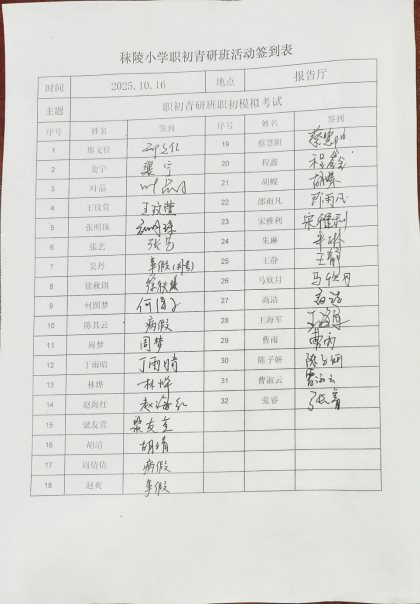 秣陵小学职初青研班活动签到表
时间 2025.10.16 地点 报告厅
主题 职初青研班职初模拟考试
序号 姓名 签到 序号 姓名 签到
1 邢文佳 19 蔡慧阳 蔡慧阳
2 裴宁 裴宁 20 程鑫 程鑫
3 叶晶 叶晶 21 胡蝶 胡蝶
4 王玟萱 王玟萱 22 邵雨凡 邵雨凡
5 张明珠 张明珠 23 宋雅利 宋雅利
6 张艺 张艺 24 朱琳 朱琳
7 吴丹 事假 25 王静 王静
8 徐秋琪 26 马欣月 马欣月
9 何圆梦 何圆梦 27 高洁 高洁
10 陈其云 病假 28 王海军 王海军
11 周梦 周梦 29 曹雨 曹雨
12 丁雨晴 丁雨晴 30 陈子妍 陈子妍
13 林烨 林烨 31 曹淑云 曹淑云
14 赵海红 赵海红 32 张睿 张睿
15 梁友萱
16 胡靖 胡靖
17 周倩倩 病假
18 赵爽 事假